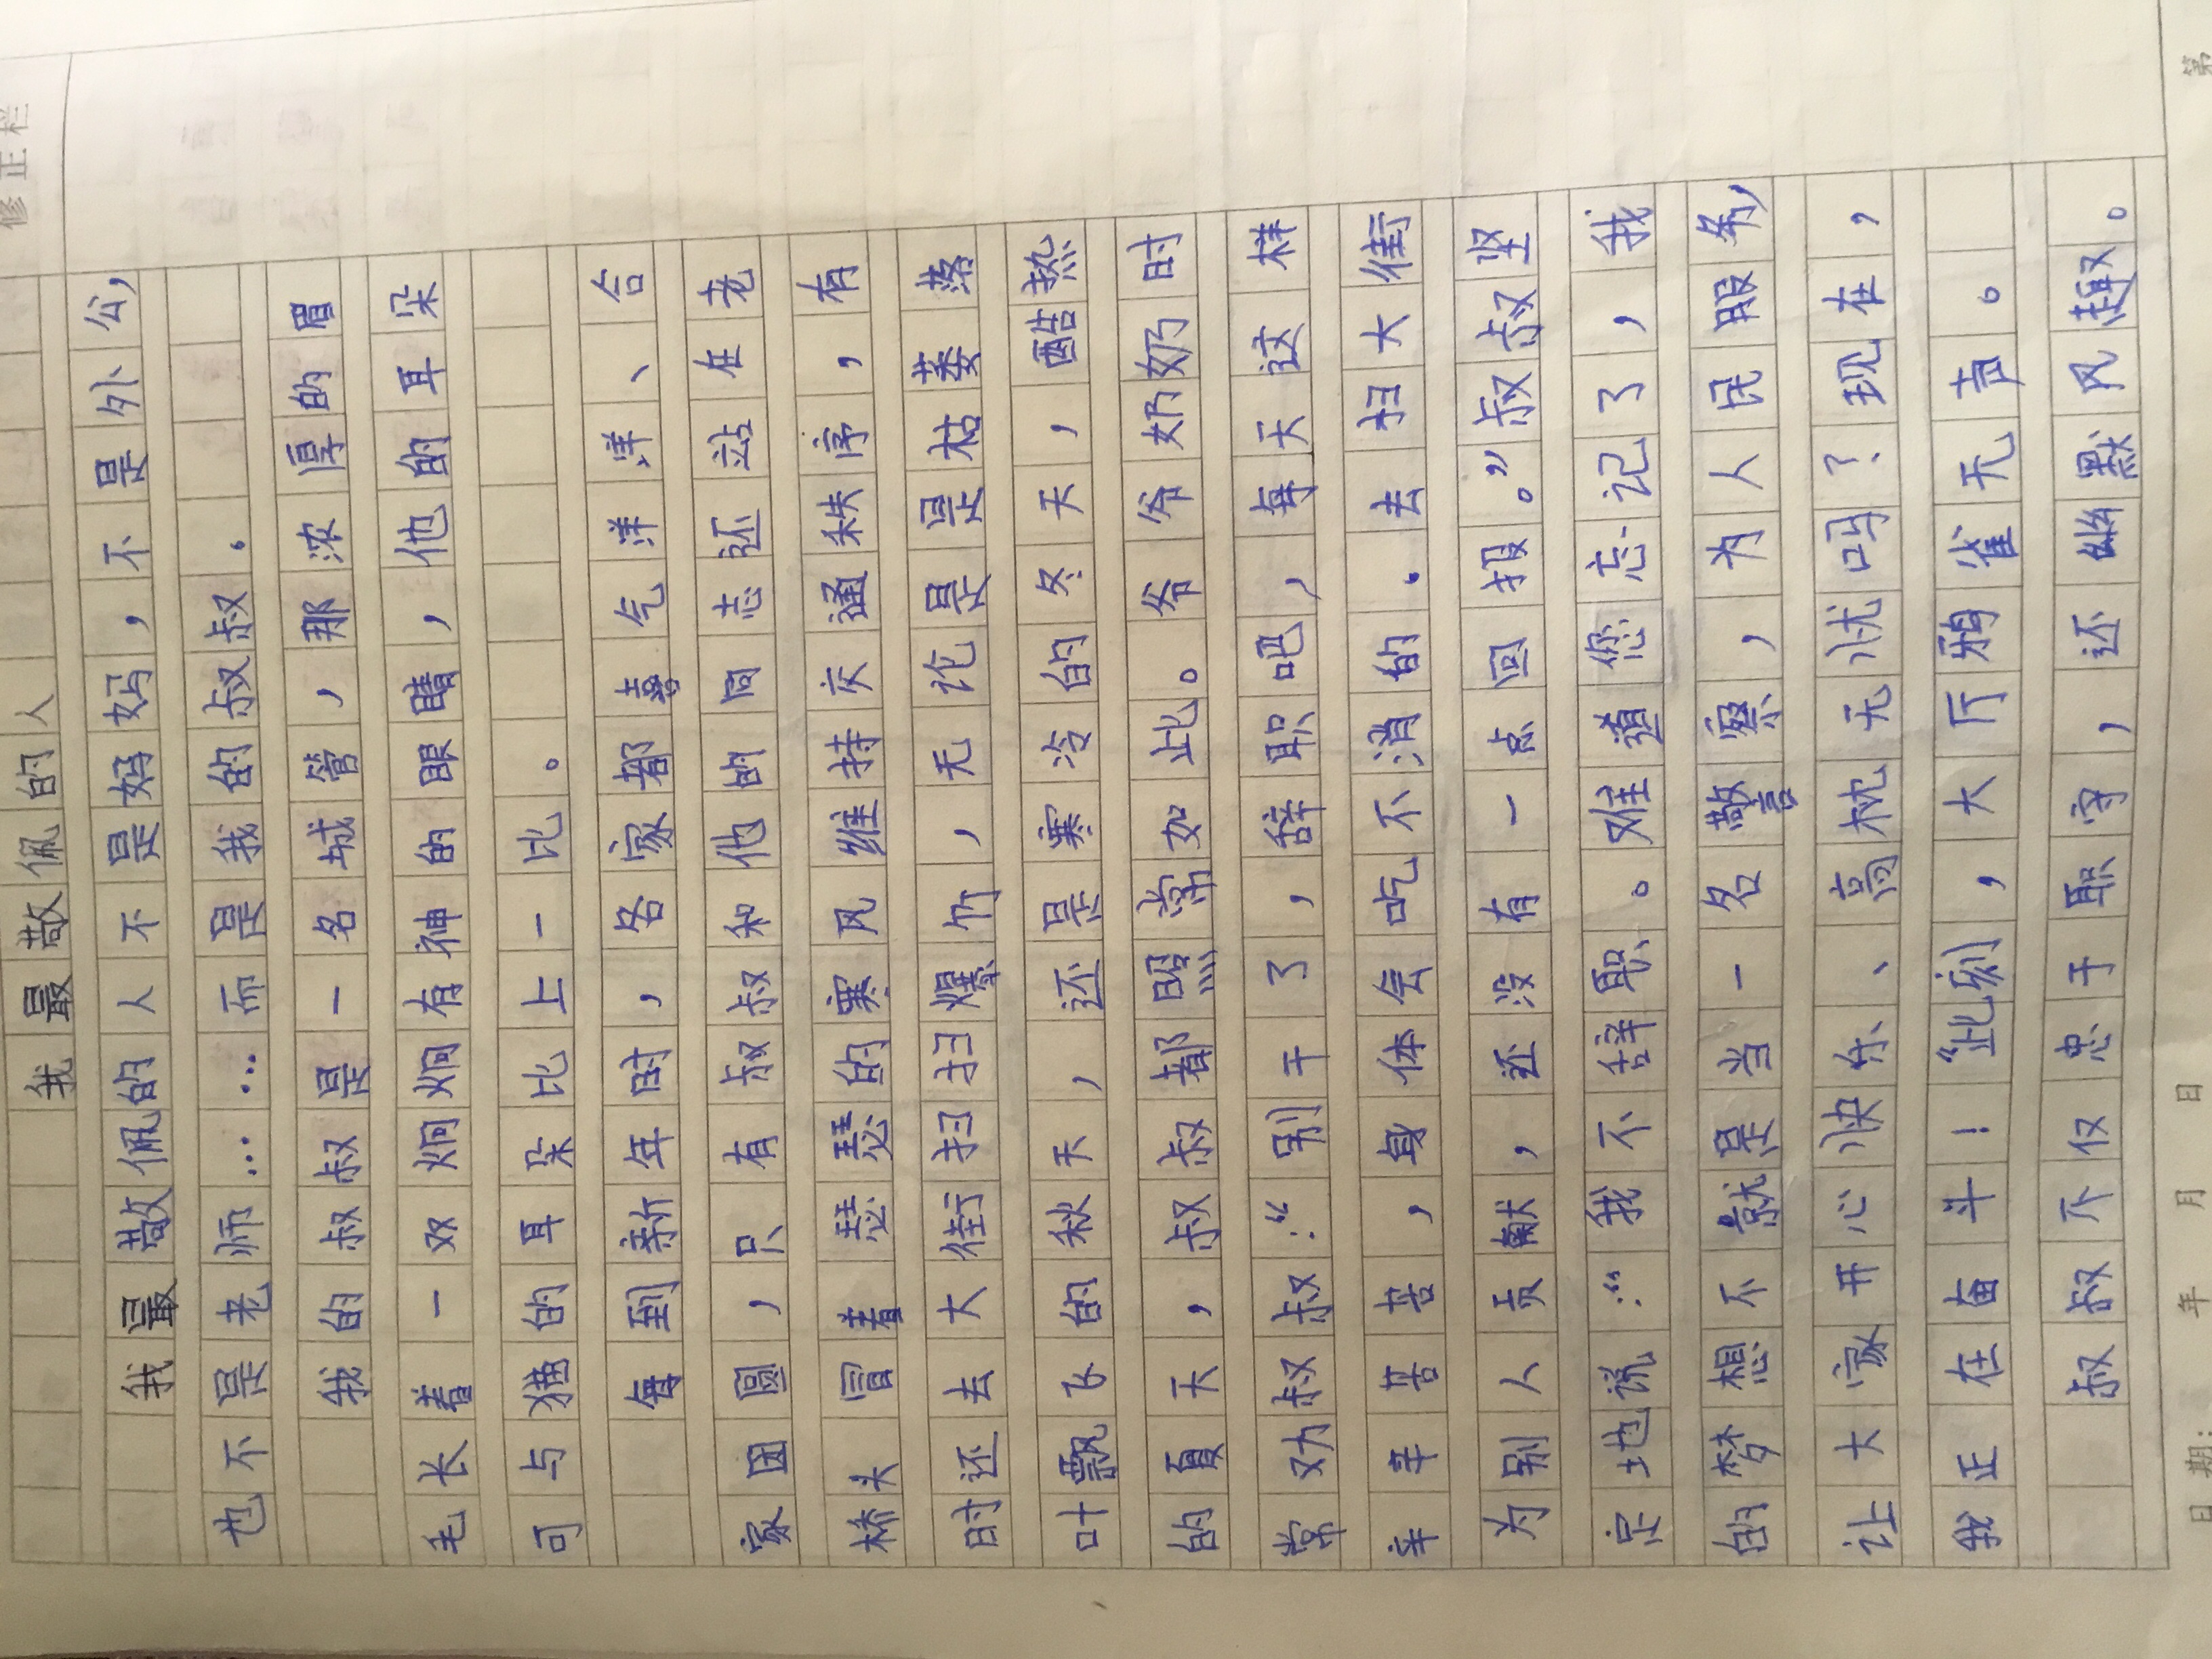 修正栏
我最敬佩的人
我最敬佩的人不是妈妈，不是外公，
也不是老师……而是我的叔叔.
我的叔叔是一名城管，那浓厚的眉
毛长着一双炯炯有神的眼睛，他的耳朵
可与猫的耳朵比上一比。
每到新年时，各家都喜气洋洋、合
家团圆，只有叔叔和他的同志还站在老
桥头冒着瑟瑟的寒风维持交通秩序，有
时还去大街扫扫爆竹，无论是是枯萎落
叶飘飞的秋天，还是寒冷的冬天，酷热
的夏天，叔叔都照常如此。爷爷奶奶时
常劝叔叔：“别干了，辞职吧，每天这样
辛辛苦苦，身体会吃不消的.去扫大街
为别人贡献，还没有一点回报。”叔叔坚
定地说：“我不辞职。难道您忘记了，我
的梦想不就是当一名警察，为人民服务，
让大家开心快乐、高枕无忧吗？现在，
我正在奋斗！“此刻，大厅鸦雀无声。
叔叔不仅忠于职守，还幽默风趣。
日期： 年 月 日 第